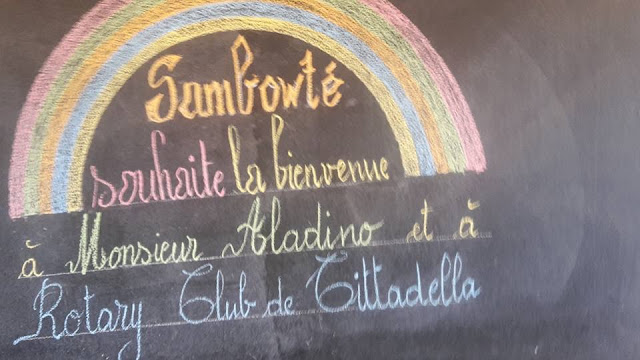 Sambowté
souhaite la bienvenue
à Monsieur Aladino et à
Rotary Club de Cittadella